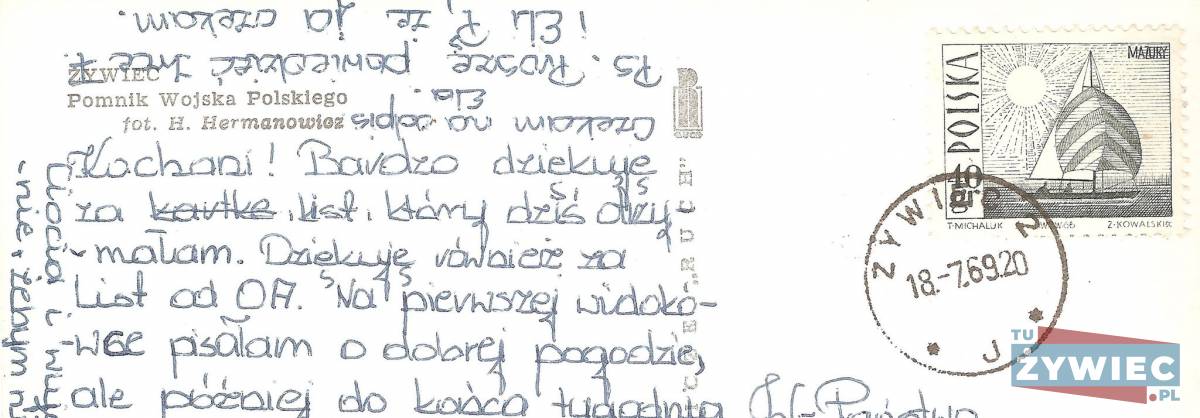 ŻYWIEC
Pomnik Wojska Polskiego
fot. H. Hermanowicz
Kochani! Bardzo dziękuję
za kartkę list, który dziś otrzy
- małam. Dziękuję również za
List od OA. Na pierwszej widoko-
wce pisałam o dobrej pogodzie,
ale później do końca tygodnia
Czekam na odpis
Ela.
Ps. Proszę powiedzieć Irce
i Eli P, że ja czekam.
- nie, żebym
"RUCH"
POLSKA
MAZURY
40
gr
T. MICHALUK
Z. KOWALSKI
ŻYWIEC 2
18.-7.69.20
J
TU
ŻYWIEC
.PL